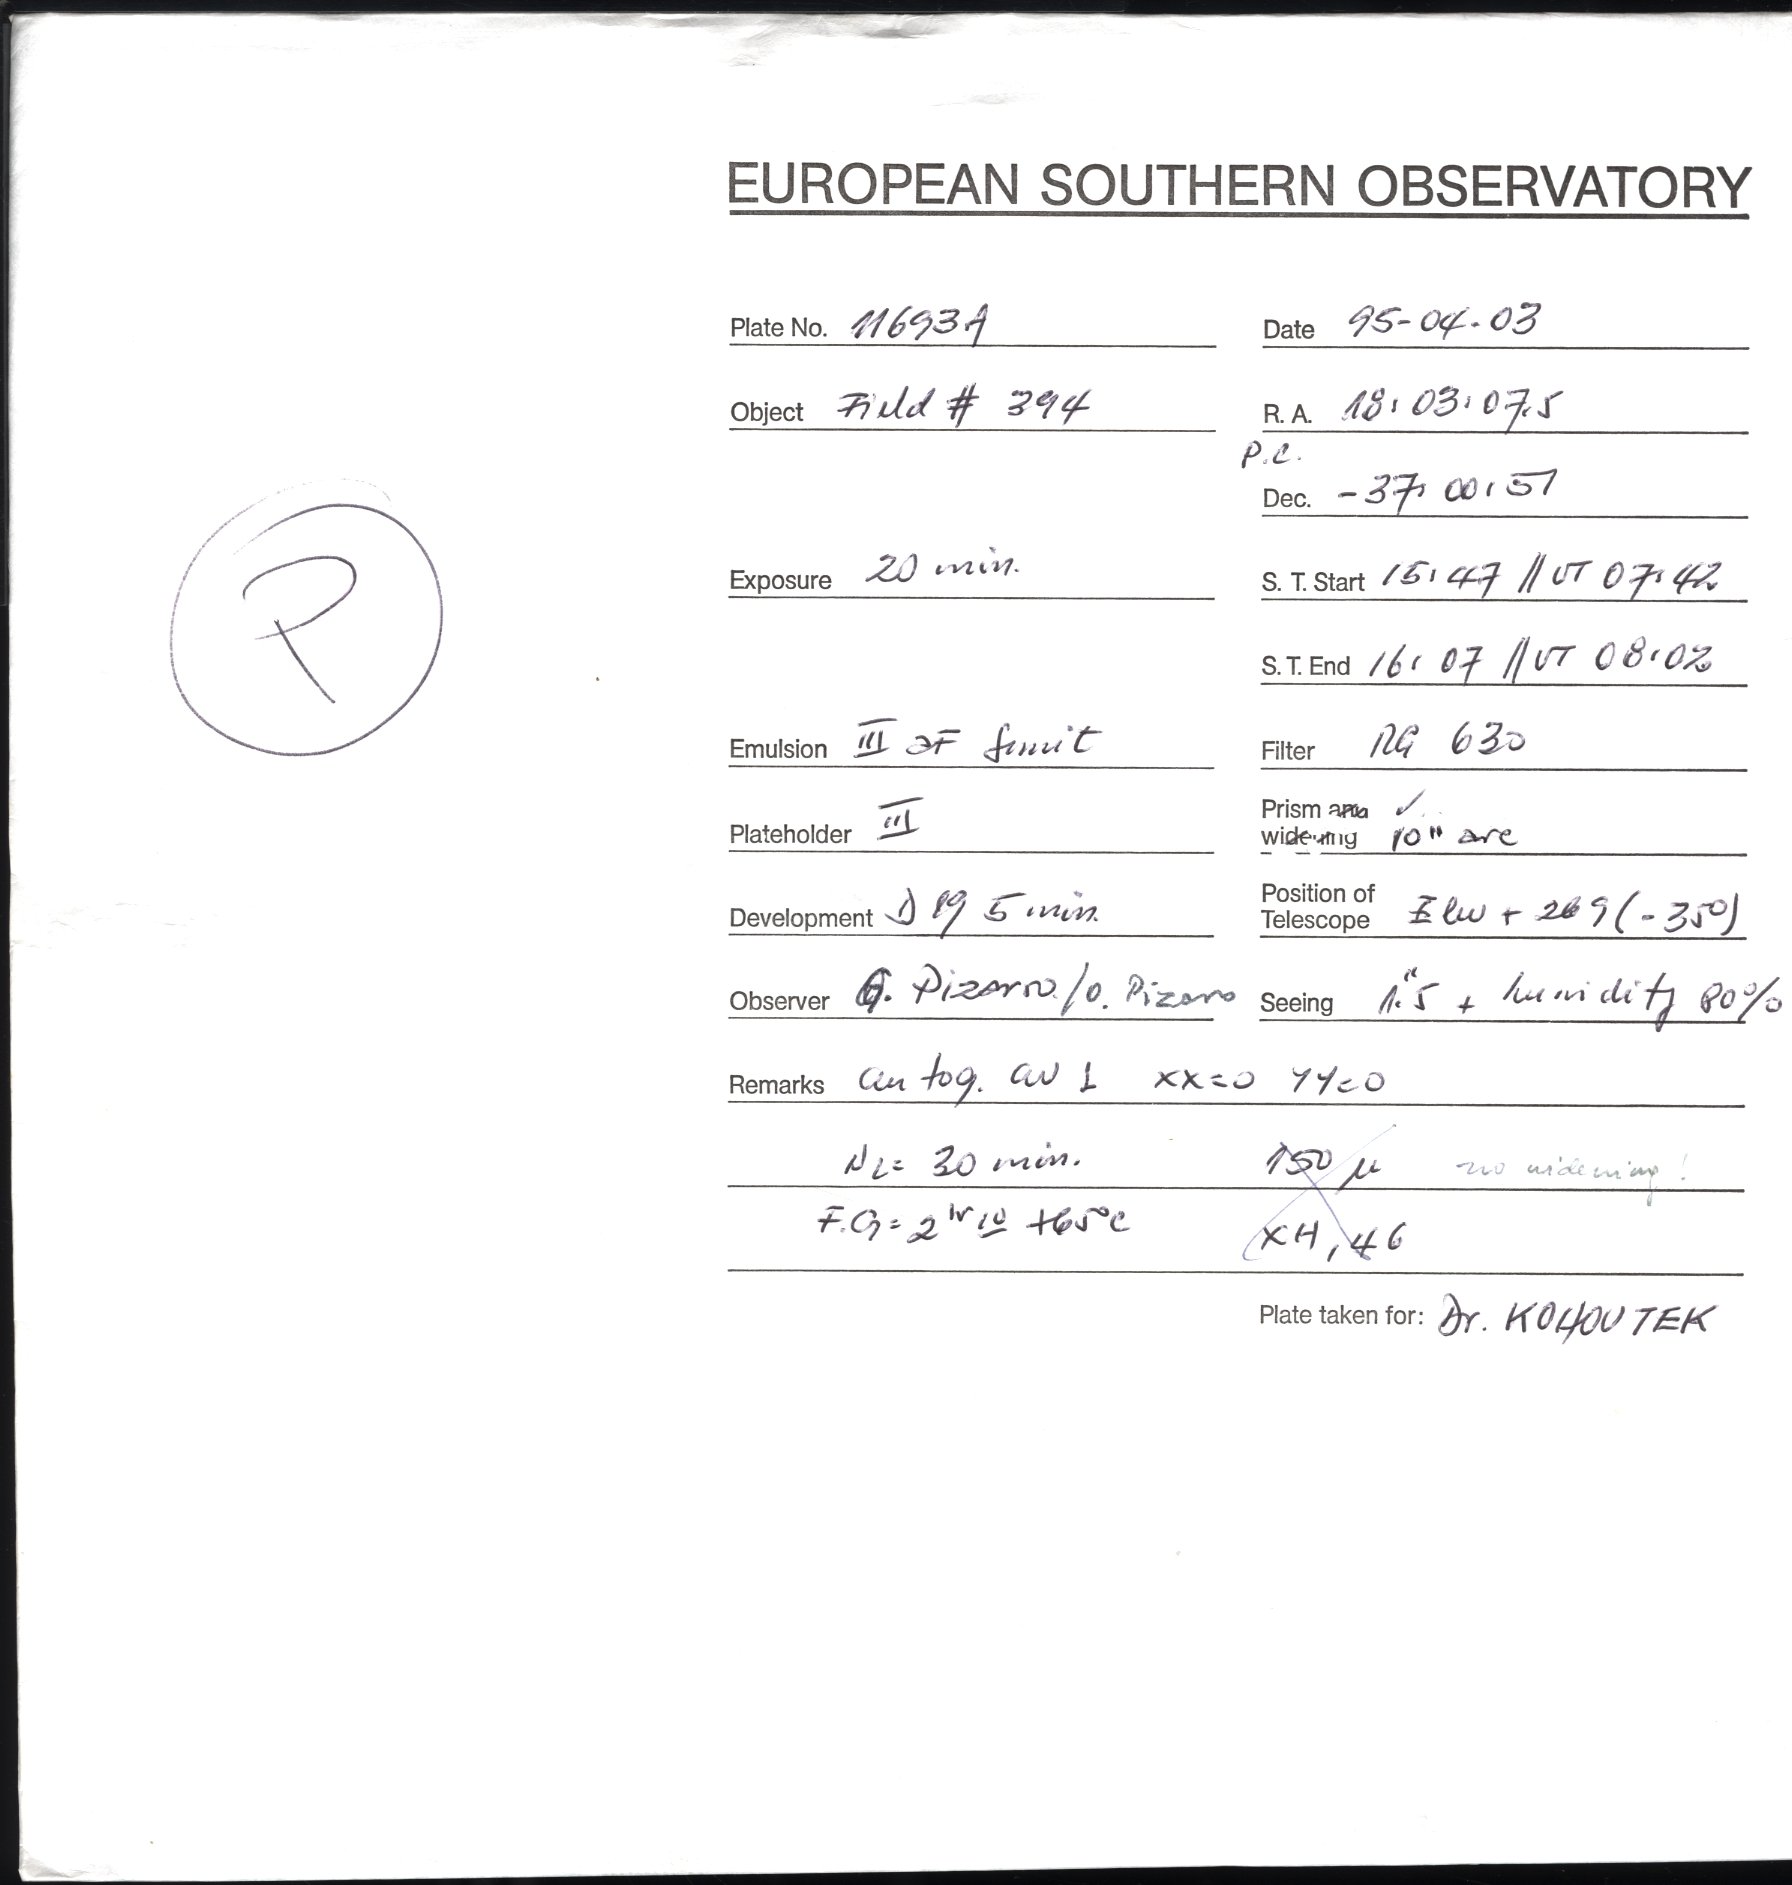 EUROPEAN SOUTHERN OBSERVATORY
Plate No. 11693A Date 95-04-03
Object Field # 394 R. A. 18:03:07.5
P.C.
Dec. -37:00:51
Exposure 20 min. S. T. Start 15:47 // UT 07:42
S. T. End 16:07 // UT 08:02
P
Emulsion III aF Filter RG 630
Plateholder III Prism and ✓
widening 10" arc
Development D 19 5 min. Position of
Telescope (-350)
Observer G. Pizarro/O. Pizarro Seeing 1"5 + humidity 80%
Remarks autog. XX=0 YY=0
N2= 30 min. 150 μ no widening!
F.G= 2hr 10 +65°C XH, 46
Plate taken for: Dr. KOHOUTEK